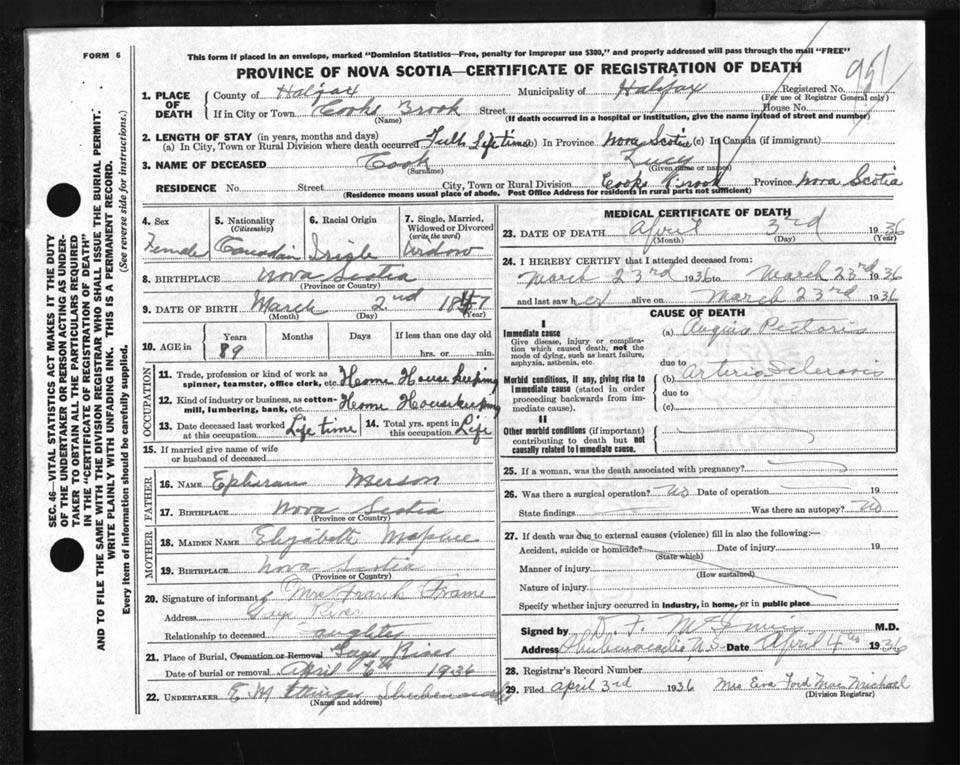 FORM 6
This form if placed in an envelope, marked "Dominion Statistics—Free, penalty for improper use $300," and properly addressed will pass through the mail "FREE"
PROVINCE OF NOVA SCOTIA—CERTIFICATE OF REGISTRATION OF DEATH
951
1. PLACE OF DEATH
County of Halifax Municipality of Halifax Registered No.
(For use of Registrar General only)
If in City or Town Cooks Brook Street House No.
(Name) (If death occurred in a hospital or institution, give the name instead of street and number)
2. LENGTH OF STAY (in years, months and days)
(a) In City, Town or Rural Division where death occurred Full Life time (b) In Province Nova Scotia (c) In Canada (if immigrant)
3. NAME OF DECEASED Cook Lucy
(Surname) (Given name or names)
RESIDENCE No. Street City, Town or Rural Division Cooks Brook Province Nova Scotia
(Residence means usual place of abode. Post Office Address for residents in rural parts not sufficient)
4. Sex
Female
5. Nationality
(Citizenship)
Canadian
6. Racial Origin
Irish
7. Single, Married, Widowed or Divorced
(write the word)
Widow
8. BIRTHPLACE Nova Scotia
(Province or Country)
9. DATE OF BIRTH March 2nd 1847
(Month) (Day) (Year)
10. AGE in Years Months Days If less than one day old
89 hrs. or min.
OCCUPATION
11. Trade, profession or kind of work as spinner, teamster, office clerk, etc. Home House keeping
12. Kind of industry or business, as cotton-mill, lumbering, bank, etc. Home Housekeeping
13. Date deceased last worked at this occupation. Life time
14. Total yrs. spent in this occupation. Life
15. If married give name of wife or husband of deceased
FATHER
16. NAME
17. BIRTHPLACE Nova Scotia
(Province or Country)
MOTHER
18. MAIDEN NAME Elizabeth
19. BIRTHPLACE Nova Scotia
(Province or Country)
20. Signature of informant Mrs Frank Frame
Address Gays River
Relationship to deceased Daughter
21. Place of Burial, Cremation or Removal Gays River
Date of burial or removal April 6th 1936
22. UNDERTAKER E M Shubenacadie
(Name and address)
MEDICAL CERTIFICATE OF DEATH
23. DATE OF DEATH April 3rd 1936
(Month) (Day) (Year)
24. I HEREBY CERTIFY that I attended deceased from:
March 23rd 1936 to March 23rd 1936
and last saw her alive on March 23rd 1936
CAUSE OF DEATH
I
Immediate cause
Give disease, injury or complication which caused death, not the mode of dying, such as heart failure, asphyxia, asthenia, etc
(a) Angina Pectoris
due to
Morbid conditions, if any, giving rise to immediate cause (stated in order proceeding backwards from immediate cause).
(b) Arterio Sclerosis
due to
(c)
II
Other morbid conditions (if important) contributing to death but not causally related to immediate cause.
25. If a woman, was the death associated with pregnancy?
26. Was there a surgical operation? No Date of operation 19
State findings Was there an autopsy? No
27. If death was due to external causes (violence) fill in also the following:—
Accident, suicide or homicide? Date of injury 19
(State which)
Manner of injury
(How sustained)
Nature of injury
Specify whether injury occurred in industry, in home, or in public place
Signed by D. F. M.D.
Address Shubenacadie, N.S. Date April 4th 1936
28. Registrar's Record Number
29. Filed April 3rd 1936 Mrs Eva Ford MacMichael
(Division Registrar)
SEC. 46—VITAL STATISTICS ACT MAKES IT THE DUTY
OF THE UNDERTAKER OR PERSON ACTING AS UNDER-
TAKER TO OBTAIN ALL THE PARTICULARS REQUIRED
IN THE "CERTIFICATE OF REGISTRATION OF DEATH"
AND TO FILE THE SAME WITH THE DIVISION REGISTRAR WHO SHALL ISSUE THE BURIAL PERMIT.
WRITE PLAINLY WITH UNFADING INK. THIS IS A PERMANENT RECORD.
Every item of information should be carefully supplied. (See reverse side for instructions.)